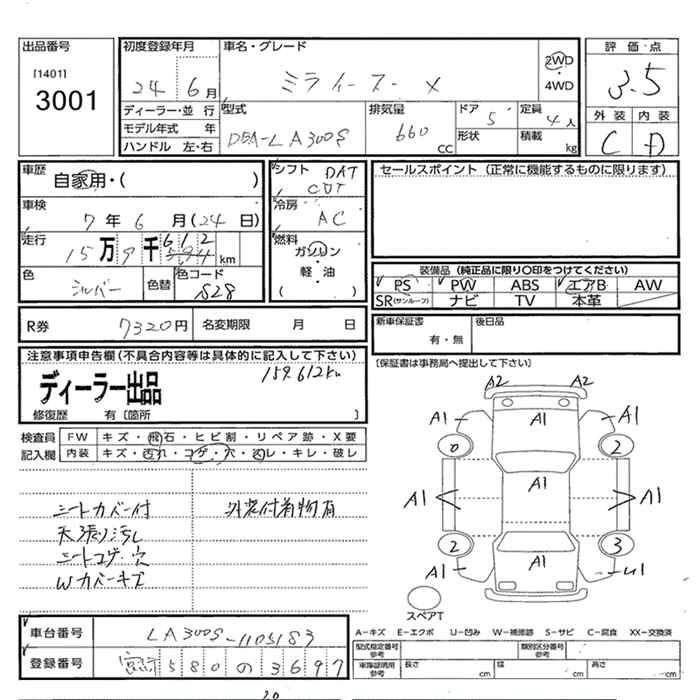 出品番号
[1401]
3001
初度登録年月
24 6月
ディーラー・並 行
モデル年式 年
ハンドル 左・右
車名・グレード
ミライース X
2WD
4WD
型式
DBA-LA300S
排気量
660 CC
ドア 5
形状
定員 4人
積載 kg
評 価 点
3.5
外 装 内 装
C D
車歴
自家用・( )
車検
7年 6月(24日)
走行
15万9千612km
594
色
シルバー
色替
色コード
S28
シフト DAT
CVT
冷房
AC
燃料
ガソリン
軽・油
( )
セールスポイント (正常に機能するものに限ります)
装備品 (純正品に限り〇印をつけてください)
PS PW ABS エアB AW
SR(サンルーフ) ナビ TV 本革
R券 7320円 名変期限 月 日
新車保証書
有・無
後日品
[保証書は事務局へ提出して下さい]
注意事項申告欄(不具合内容等は具体的に記入して下さい)
ディーラー出品
159.612km
修復歴 有 [箇所 ]
検査員
記入欄
FW キズ・飛石・ヒビ割・リペア跡・X要
内装 キズ・汚れ・コゲ・穴・凹レ・キレ・破レ
シートカバー付
天張り汚し
シートコゲ・穴
Wカバーキズ
外装付着物有
A2 A2
A1 A1 A1
0 2
A1 A1 A1
2 3
A1 A1 U1
スペアT
A-キズ E-エクボ U-凹み W-補修跡 S-サビ C-腐食 XX-交換済
車台番号
LA300S-1105183
登録番号
580の3697
型式指定番号
参考
類別区分番号
参考
車庫証明用
参考
長さ cm
幅 cm
高さ cm
20